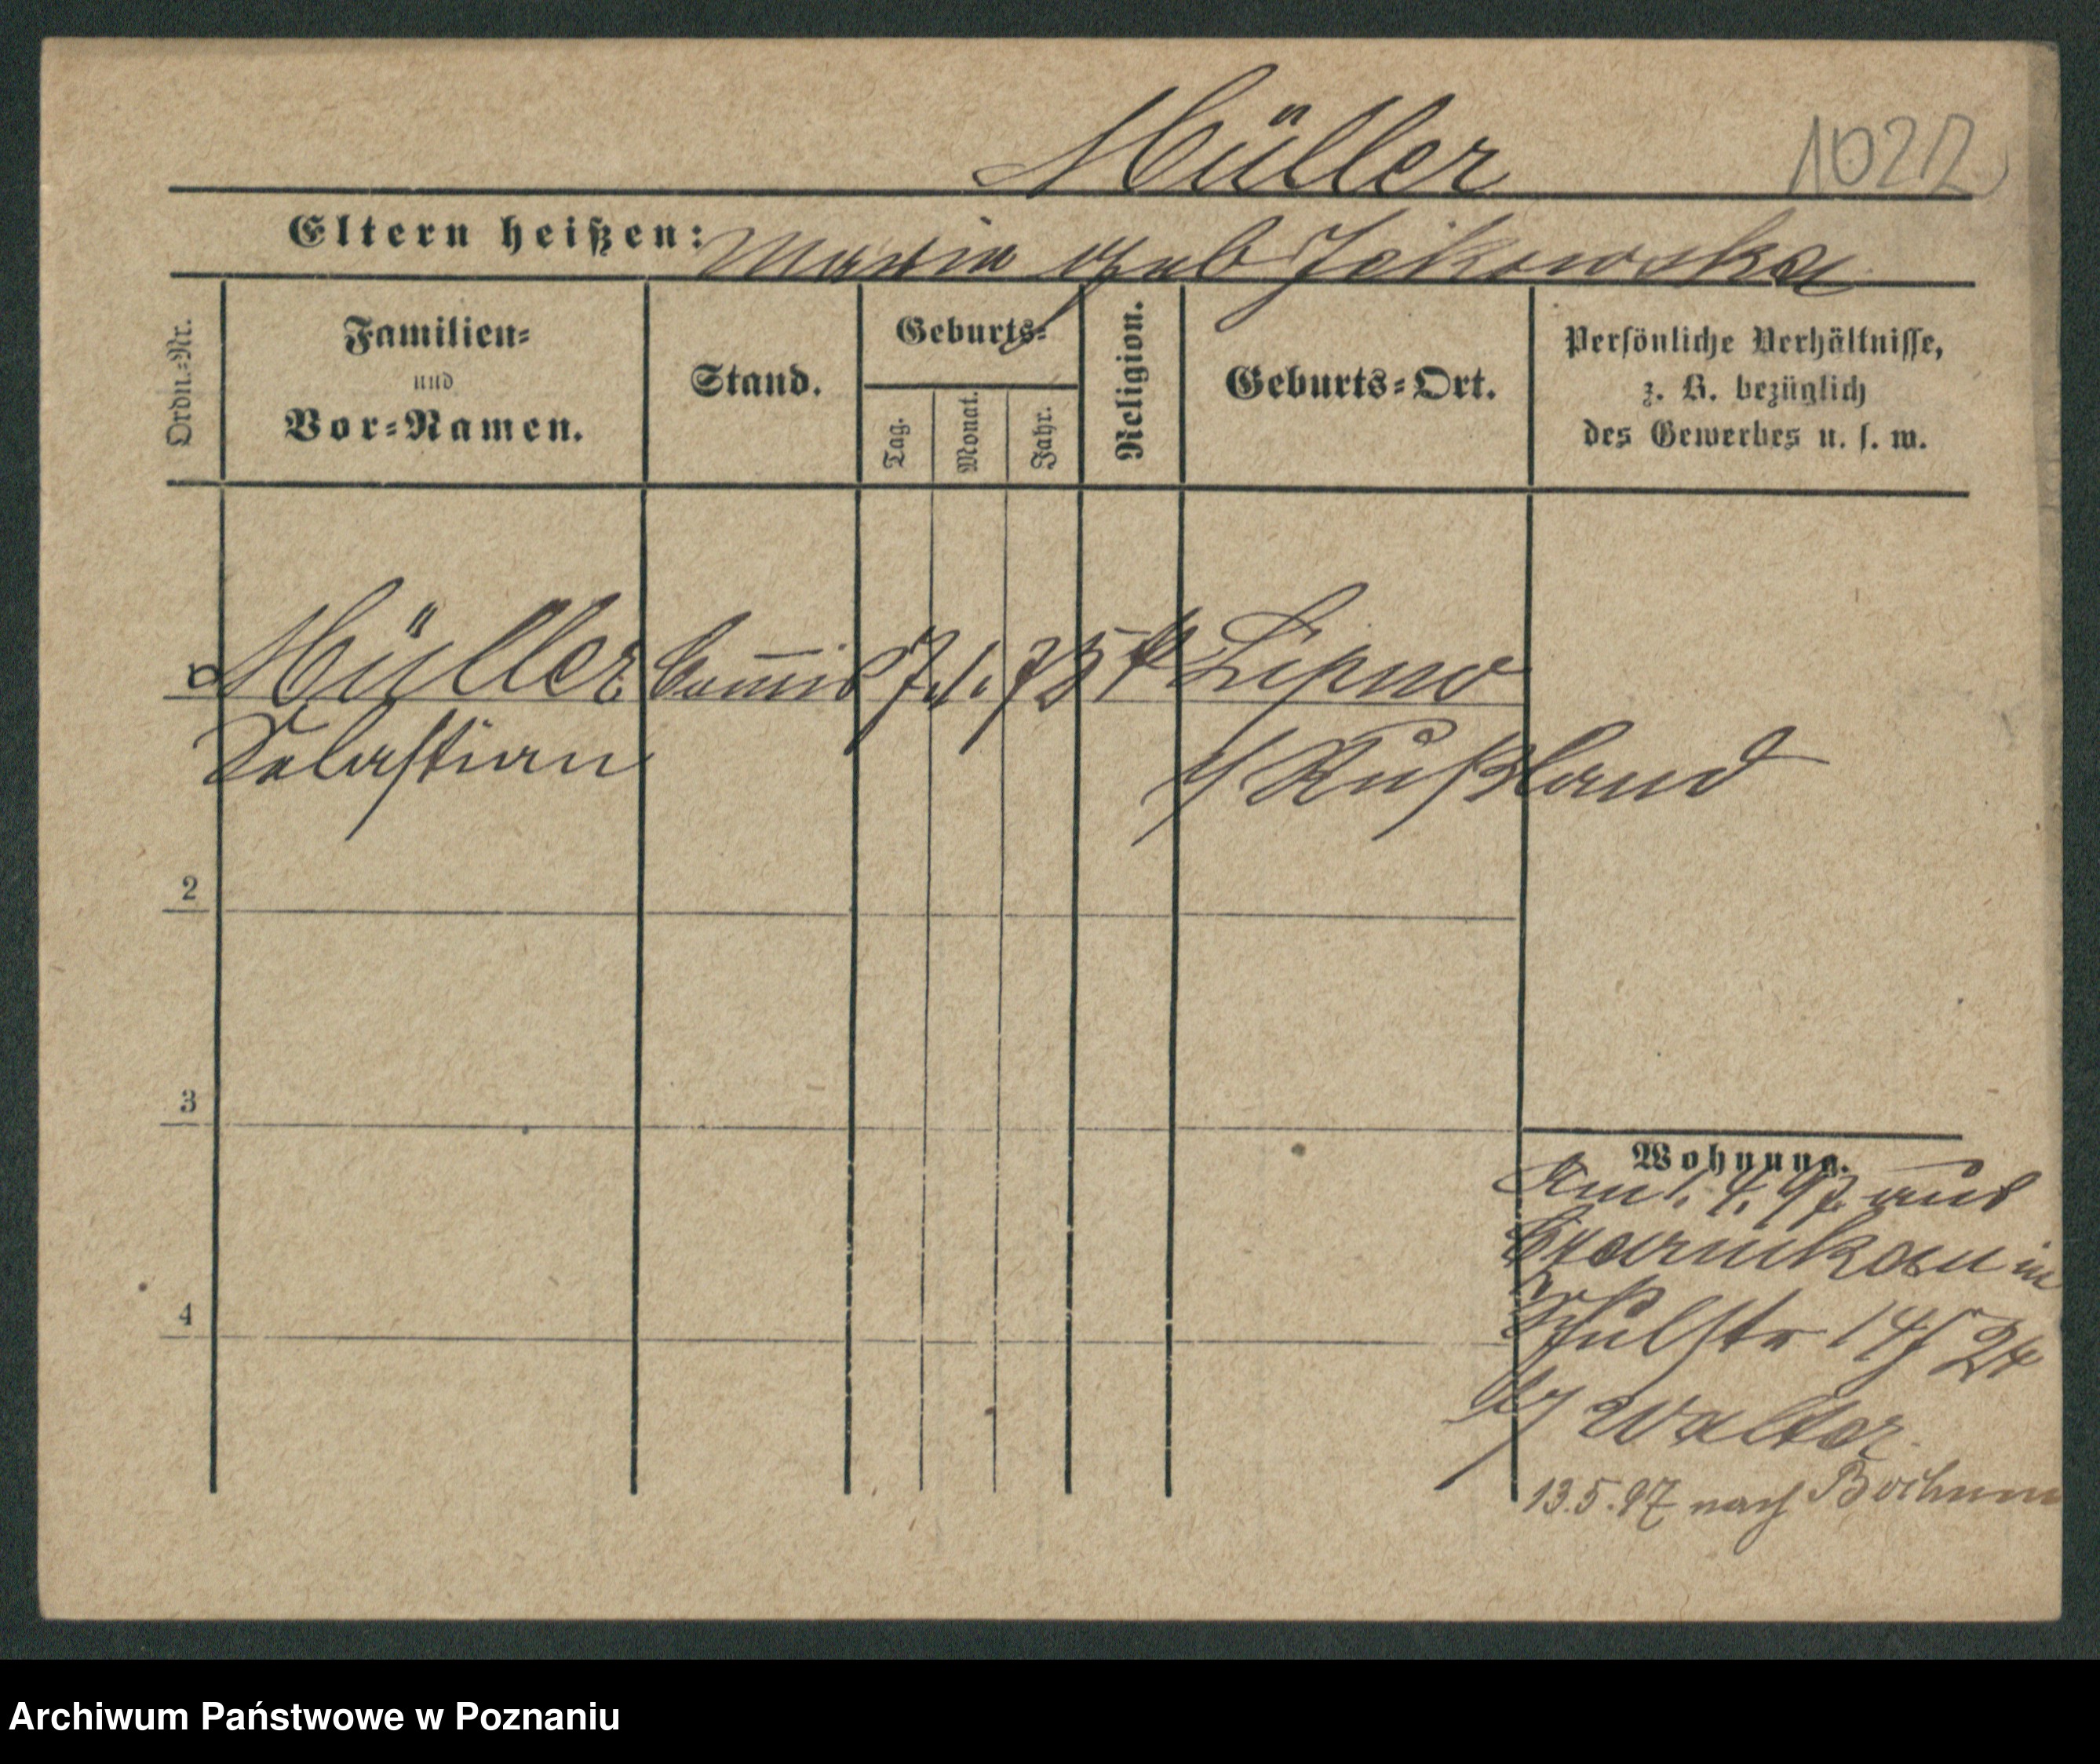 Müller 1022
Eltern heißen: Maria geb Jakowska
Ordn.=Nr.
Familien=
und
Vor=Namen.
Stand.
Geburts=
Tag.
Monat.
Jahr.
Religion.
Geburts=Ort.
Persönliche Verhältnisse,
z. B. bezüglich
des Gewerbes u. s. w.
Müller Commis 7. 1. 75 k Lipno
Sebastian
i/ Rußland
2
3
4
Wohnung.
Am 1. 4. 97. aus
Czarnikau in
Schulstr 14
b/ Walter.
13.5.97 nach Bochum
Archiwum Państwowe w Poznaniu